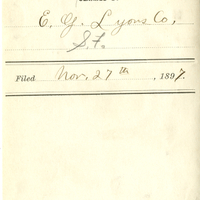 E. G. Lyons Co,
S.F.
Filed Nov. 27th, 1897.